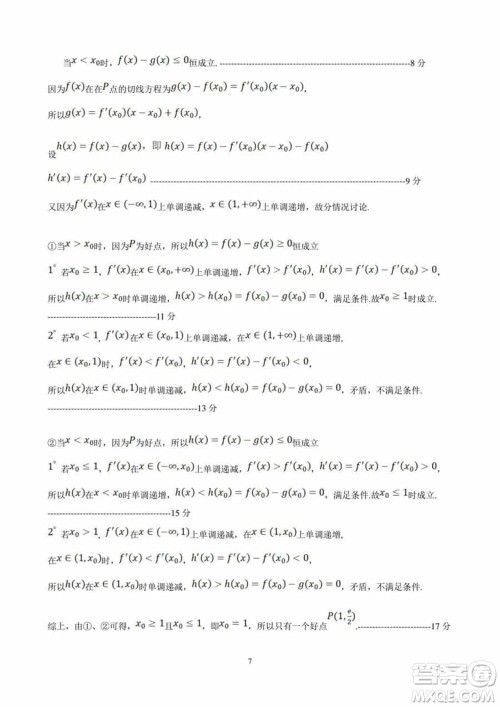 当x < x₀时，f(x) − g(x) ≤ 0恒成立. ----------------------------------------------------------------8 分
因为f(x)在在P点的切线方程为g(x) − f(x₀) = f′(x₀)(x − x₀),
所以g(x) = f′(x₀)(x − x₀) + f(x₀),
设h(x) = f(x) − g(x)，即 h(x) = f(x) − f′(x₀)(x − x₀) − f(x₀)
h′(x) = f′(x) − f′(x₀) ----------------------------------------------------------------9 分
又因为f′(x)在x ∈ (−∞, 1)上单调递减，在x ∈ (1, +∞)上单调递增，故分情况讨论.
①当x > x₀时，因为P为好点，所以h(x) = f(x) − g(x) ≥ 0恒成立
1° 若x₀ ≥ 1, f′(x)在x ∈ (x₀, +∞)上单调递增，f′(x) > f′(x₀), h′(x) = f′(x) − f′(x₀) > 0,
所以h(x)在x > x₀时单调递增，h(x) > h(x₀) = f(x₀) − g(x₀) = 0，满足条件.故x₀ ≥ 1时成立.
------------------------------------11 分
2° 若x₀ < 1, f′(x)在x ∈ (x₀, 1)上单调递减，在x ∈ (1, +∞)上单调递增，
在x ∈ (x₀, 1)时，f′(x) < f′(x₀), h′(x) = f′(x) − f′(x₀) < 0,
所以h(x)在x ∈ (x₀, 1)时单调递减，h(x) < h(x₀) = f(x₀) − g(x₀) = 0，矛盾，不满足条件.
--------------------------------------------------13 分
②当x < x₀时，因为P为好点，所以h(x) = f(x) − g(x) ≤ 0恒成立
1° 若x₀ ≤ 1, f′(x)在x ∈ (−∞, x₀)上单调递减，f′(x) > f′(x₀), h′(x) = f′(x) − f′(x₀) > 0,
所以h(x)在x < x₀时单调递增，h(x) < h(x₀) = f(x₀) − g(x₀) = 0，满足条件.故x₀ ≤ 1时成立.
------------------------------------------15 分
2° 若x₀ > 1, f′(x)在x ∈ (−∞, 1)上单调递减，在x ∈ (1, x₀)上单调递增，
在x ∈ (1, x₀)时，f′(x) < f′(x₀), h′(x) = f′(x) − f′(x₀) < 0,
所以h(x)在x ∈ (1, x₀)时单调递减，h(x) > h(x₀) = f(x₀) − g(x₀) = 0，矛盾，不满足条件.
综上，由①、②可得，x₀ ≥ 1且x₀ ≤ 1，即x₀ = 1，所以只有一个好点P(1, e/2).------------------------17 分
7
答案圈
MXQE.COM